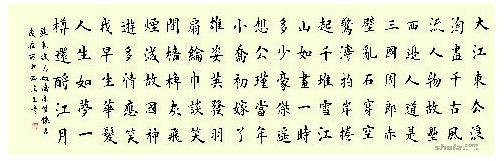 大江東去浪
淘盡千古風
流人物故壘
西邊人道是
三國周郎赤
壁亂石穿空
驚濤拍岸捲
起千堆雪江
山如畫一時
多少豪傑遙
想公瑾當年
小喬初嫁了
雄姿英發羽
扇綸巾談笑
間檣灰飛
煙滅故國神
遊多情應笑
我早生華髮
人生如夢一
樽還酹江月